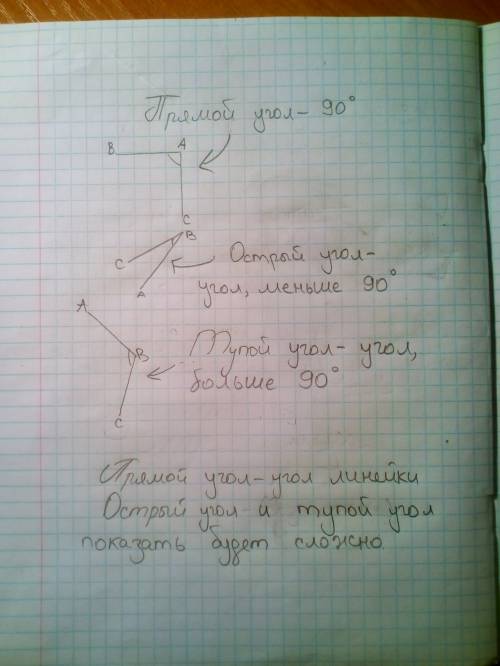 Прямой угол - 90°
B A
C
B
C
A
Острый угол -
угол, меньше 90°
A
B
C
Тупой угол - угол,
больше 90°
Прямой угол - угол линейки
Острый угол и тупой угол
показать будет сложно.